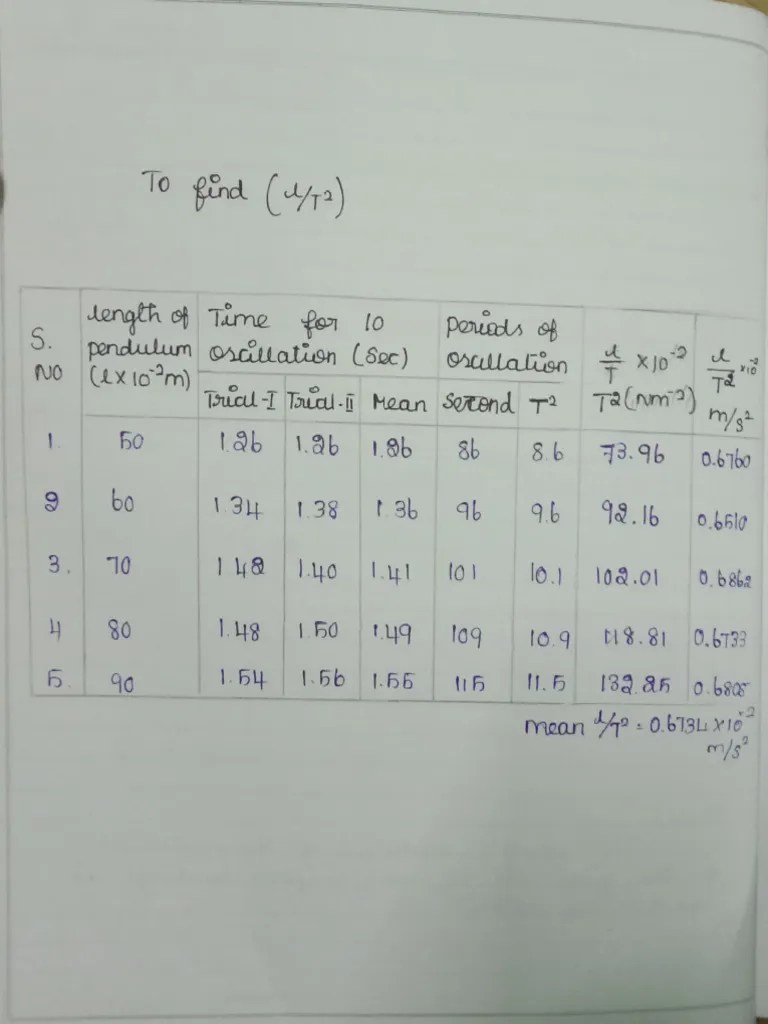 To find (l/T²)
S. NO | length of pendulum (l×10⁻²m) | Time for 10 oscillation (Sec) | Periods of oscillation | l/T ×10⁻² T²(nm⁻²) | l/T² ×10⁻² m/s²
Trial-I | Trial-II | Mean | Second | T²
1. | 50 | 1.26 | 1.26 | 1.26 | 86 | 8.6 | 73.96 | 0.6760
2 | 60 | 1.34 | 1.38 | 1.36 | 96 | 9.6 | 92.16 | 0.6510
3. | 70 | 1.42 | 1.40 | 1.41 | 101 | 10.1 | 102.01 | 0.6862
4 | 80 | 1.48 | 1.50 | 1.49 | 109 | 10.9 | 118.81 | 0.6733
5. | 90 | 1.54 | 1.56 | 1.55 | 115 | 11.5 | 132.25 | 0.6805
mean l/T² = 0.6734 ×10⁻²
m/s²